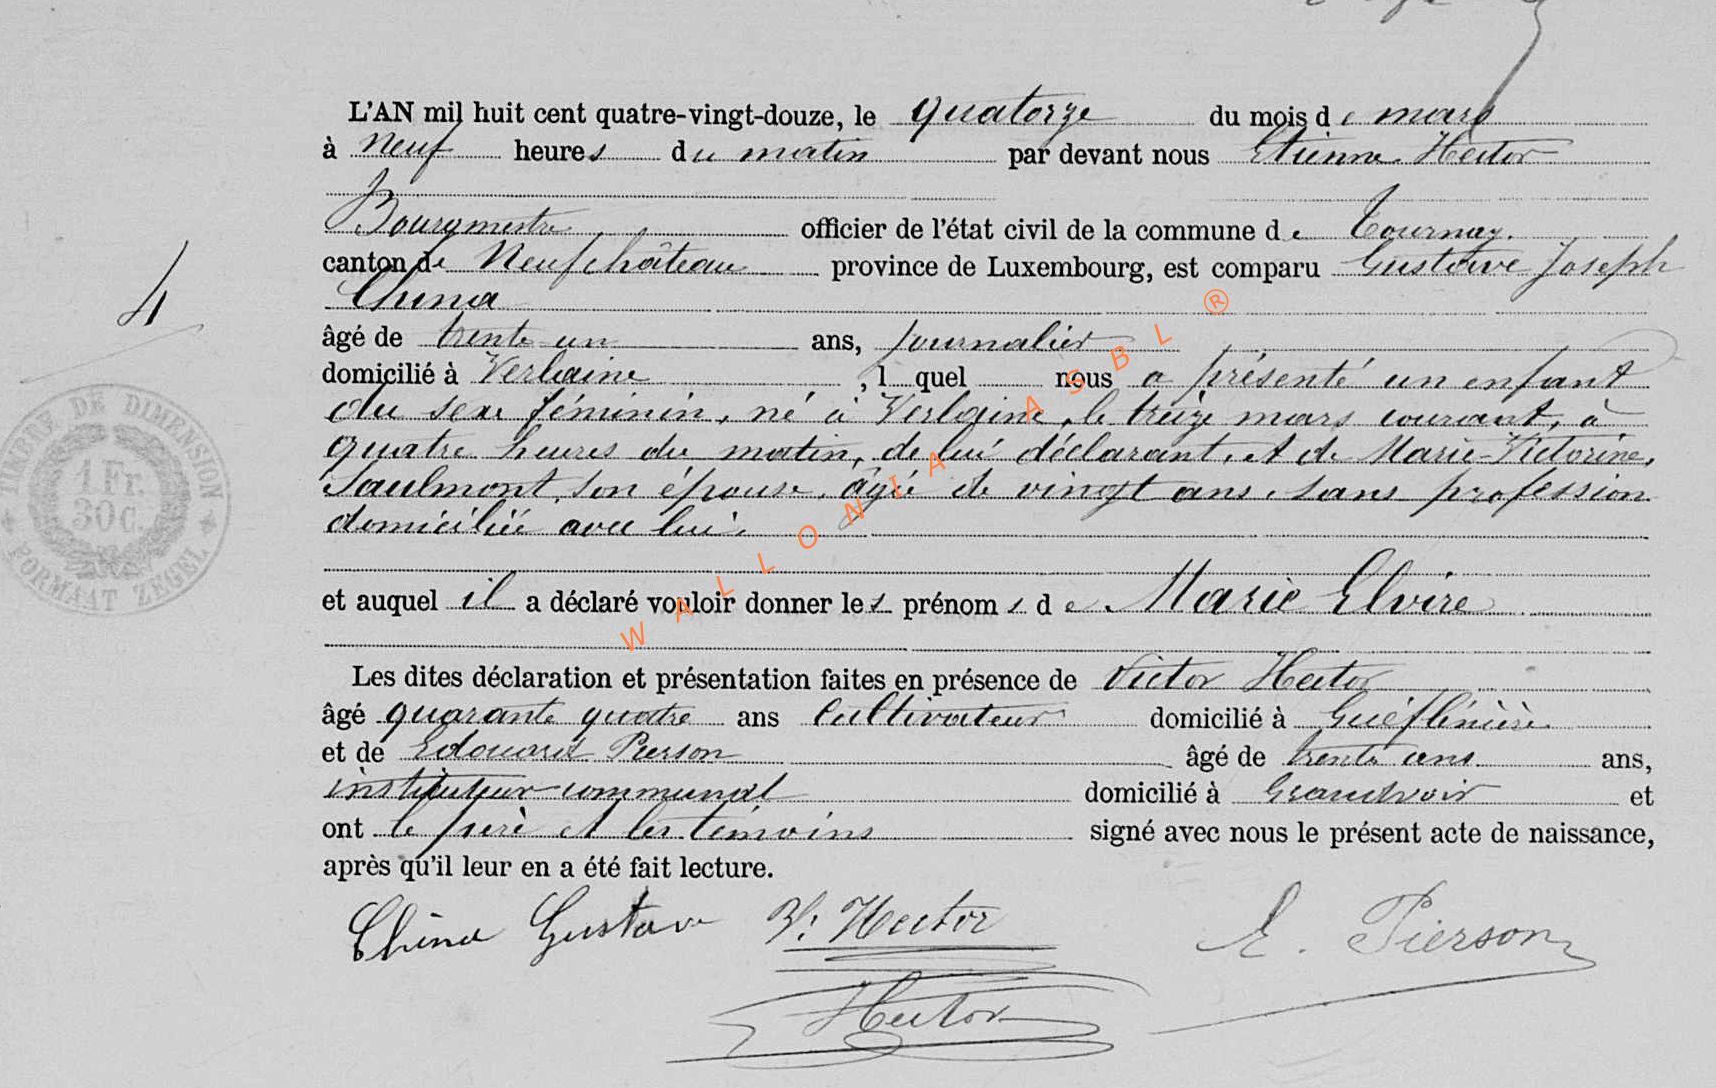 L'AN mil huit cent quatre-vingt-douze, le quatorze du mois de mars
à neuf heures du matin par devant nous Etienne Hector
Bourgmestre officier de l'état civil de la commune de Tournay.
canton de Neufchâteau province de Luxembourg, est comparu Gustave Joseph
China
âgé de trente un ans, journalier
domicilié à Verlaine, lequel nous a présenté un enfant
du sexe féminin, né à Verlaine, le treize mars courant, à
quatre heures du matin, de lui déclarant, et de Marie-Victorine,
Saulmont, son épouse, âgée de vingt ans, sans profession
domiciliée avec lui.
4
TIMBRE DE DIMENSION
1 Fr.
30 C.
FORMAAT ZEGEL
et auquel il a déclaré vouloir donner les prénoms de Marie Elvire
WALLONIA ASBL ®
Les dites déclaration et présentation faites en présence de Victor Hector
âgé quarante quatre ans cultivateur domicilié à
et de Edouard Pierson âgé de trente ans ans,
instituteur communal domicilié à Grandvoir et
ont le père et les témoins signé avec nous le présent acte de naissance,
après qu'il leur en a été fait lecture.
China Gustave V. Hector E. Pierson
Hector